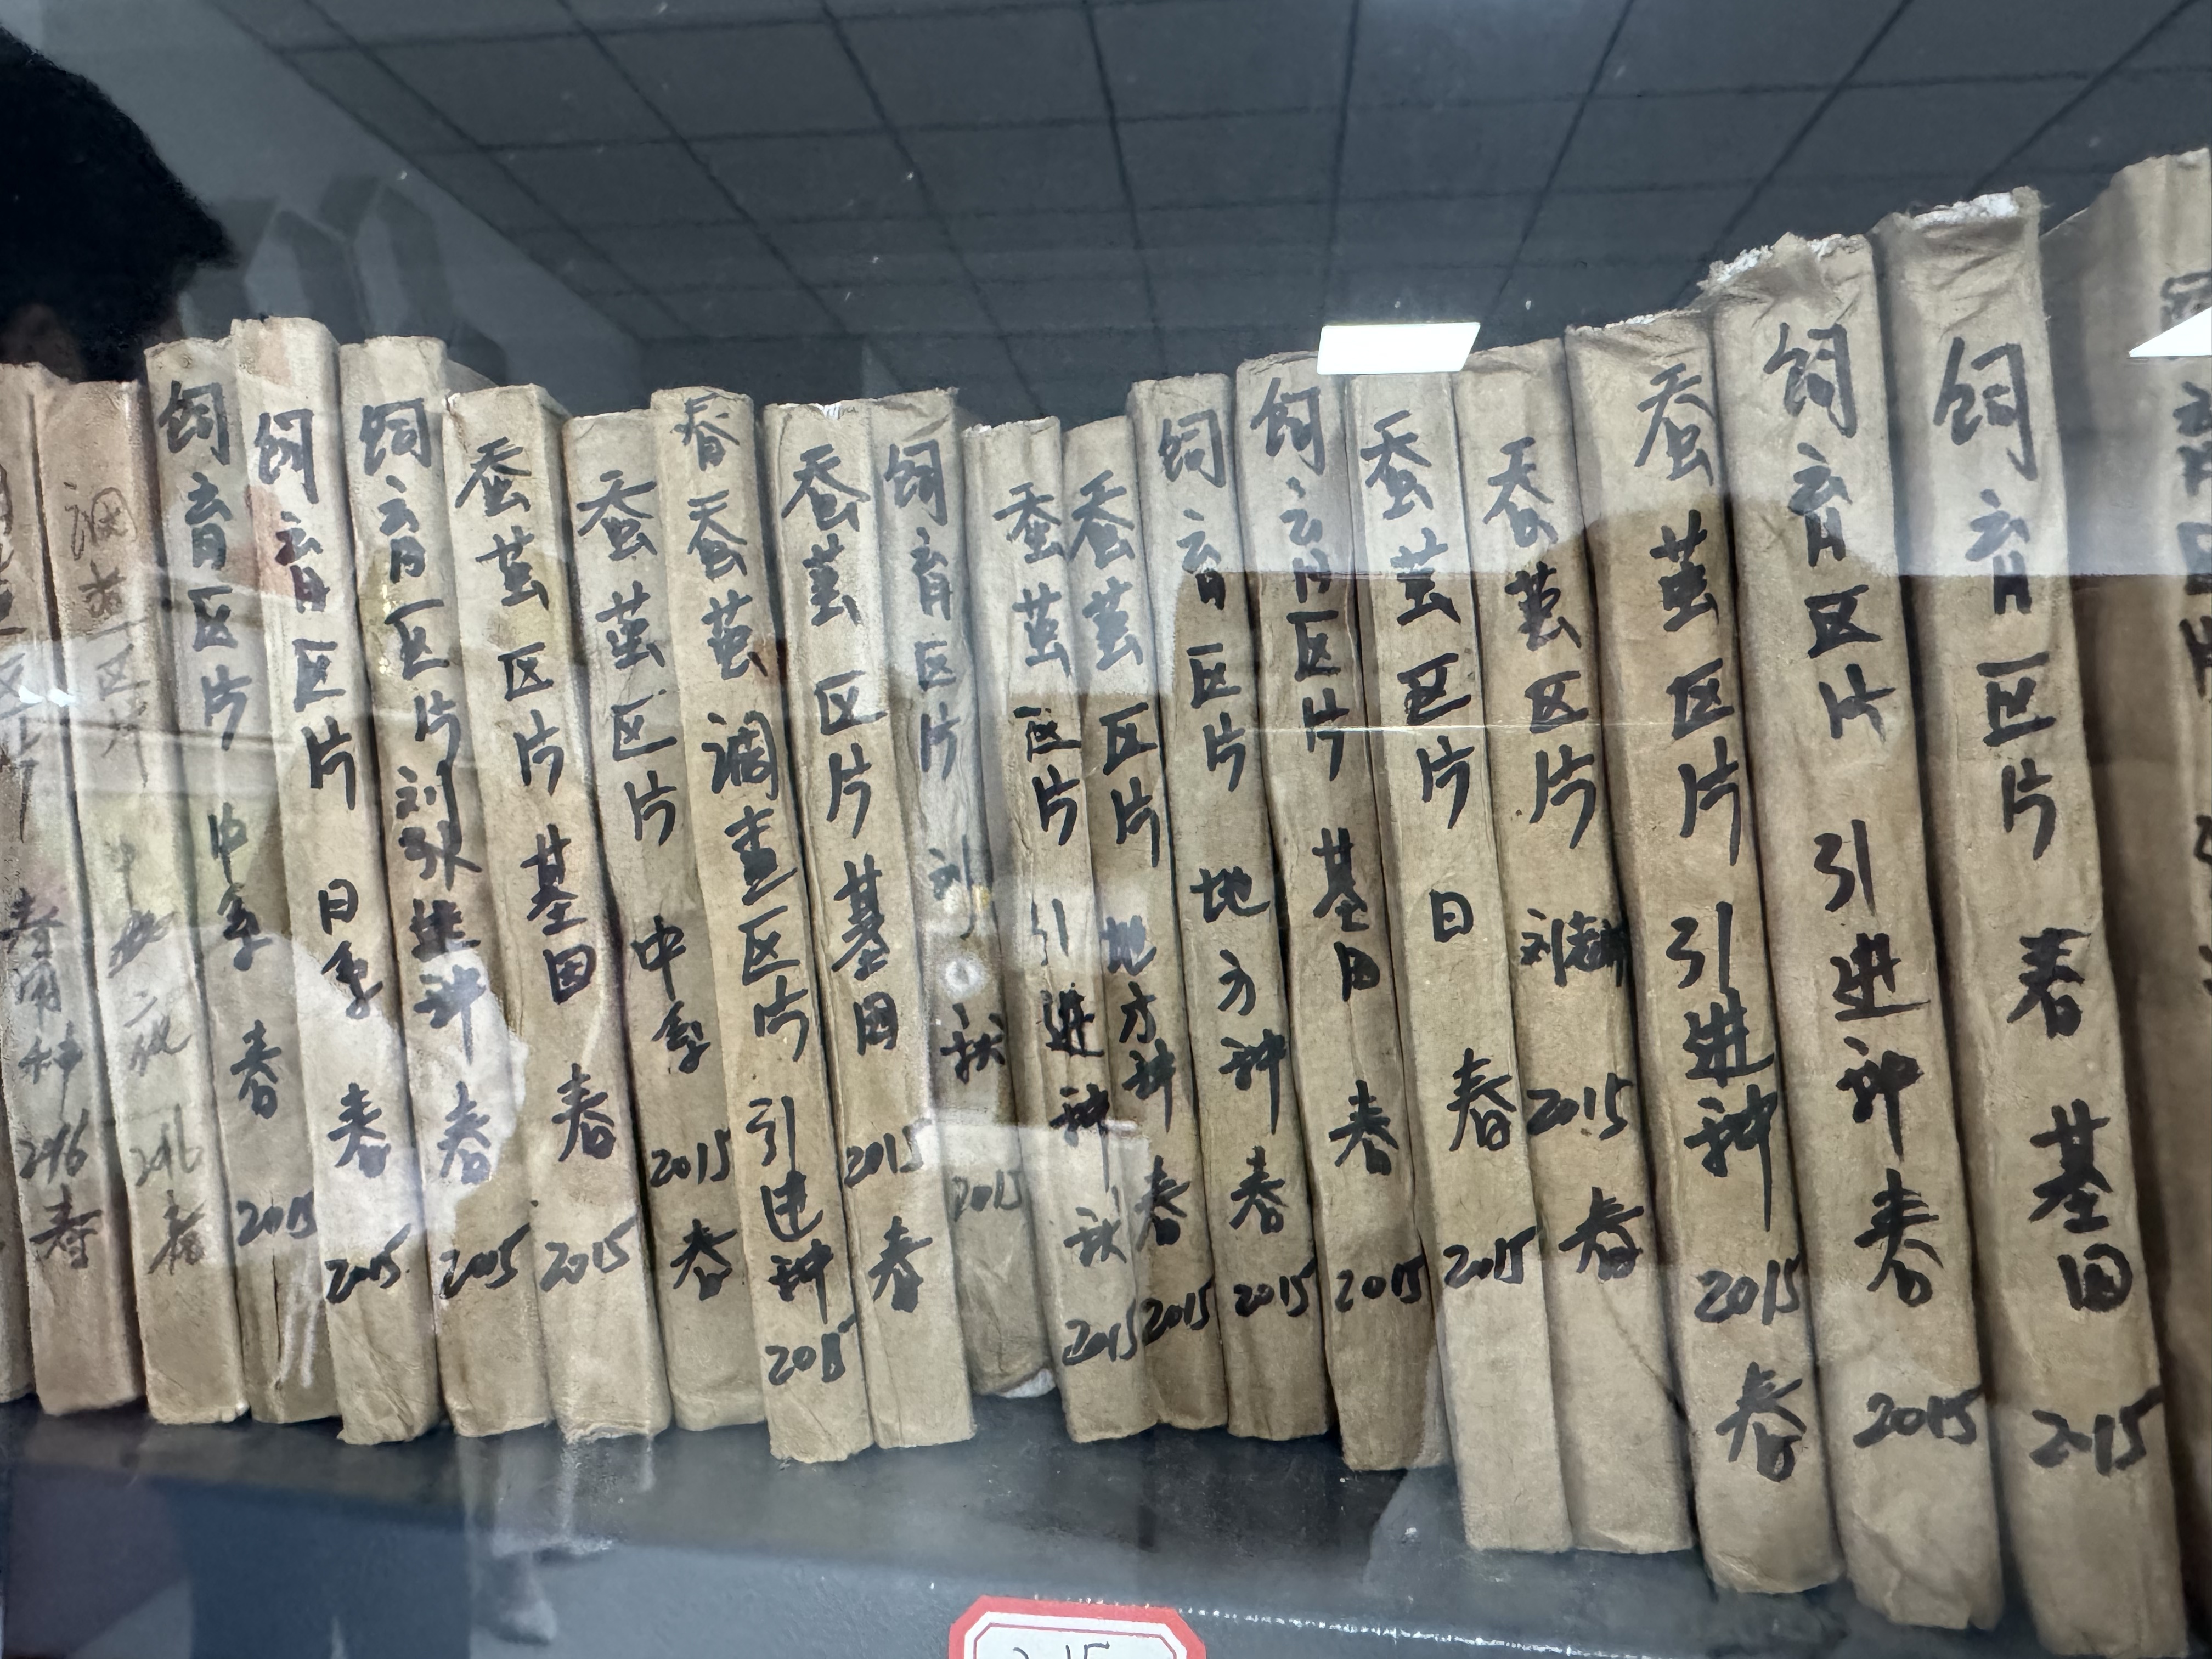 调查区片 2016 春
饲育区片 中系 春 2015
饲育区片 日系 春 2015
饲育区片 刘引进种 春 2015
蚕茧区片 基因 春 2015
蚕茧区片 中系 2015 春
春蚕茧调查区片 引进种 2015
蚕茧区片 基因 2015 春
饲育区片 刘 秋 2015
蚕茧区片 引进种 秋 2015
蚕茧区片 地方种 春 2015
饲育区片 地方种 春 2015
饲育区片 基因 春 2015
蚕茧区片 日 春 2015
蚕茧区片 刘 2015 春
蚕茧区片 引进种 2015 春
饲育区片 引进种 春 2015
饲育区片 春 基因 2015